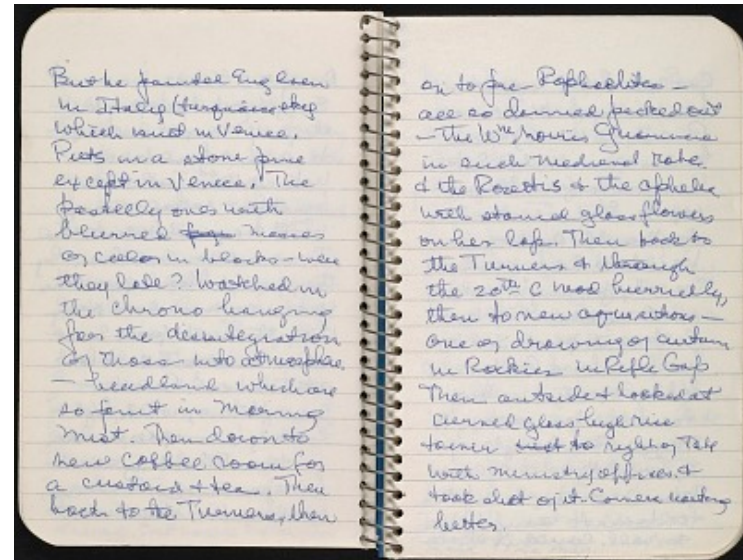 But he painted England
in Italy (turquoise sky
which isn't in Venice.
Puts in a stone pine
except in Venice. The
pastelly ones with
blurred masses
of color in blocks – were
they late? Watched in
the chrono hanging
for the disintegration
of those into atmosphere
– headland which are
so faint in morning
mist. Then down to
new coffee room for
a custard & tea. Then
back to the Turners, then
on to pre-Raphaelites –
all so damned
– the Wm Morris Guinevere
in such medieval robe
& the Rossettis & the Ophelia
with stained glass flowers
on her lap. Then back to
the Turners & through
the 20th C mod hurriedly,
then to new acquisitions –
one of drawing of curtain
in Rockies in Rifle Gap.
Then outside & looked at
curved glass high rise
to right of Tate
with ministry offices &
took shot of it. Camera working
better.